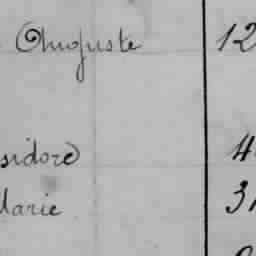 Auguste 12
sidore 4
Marie 3